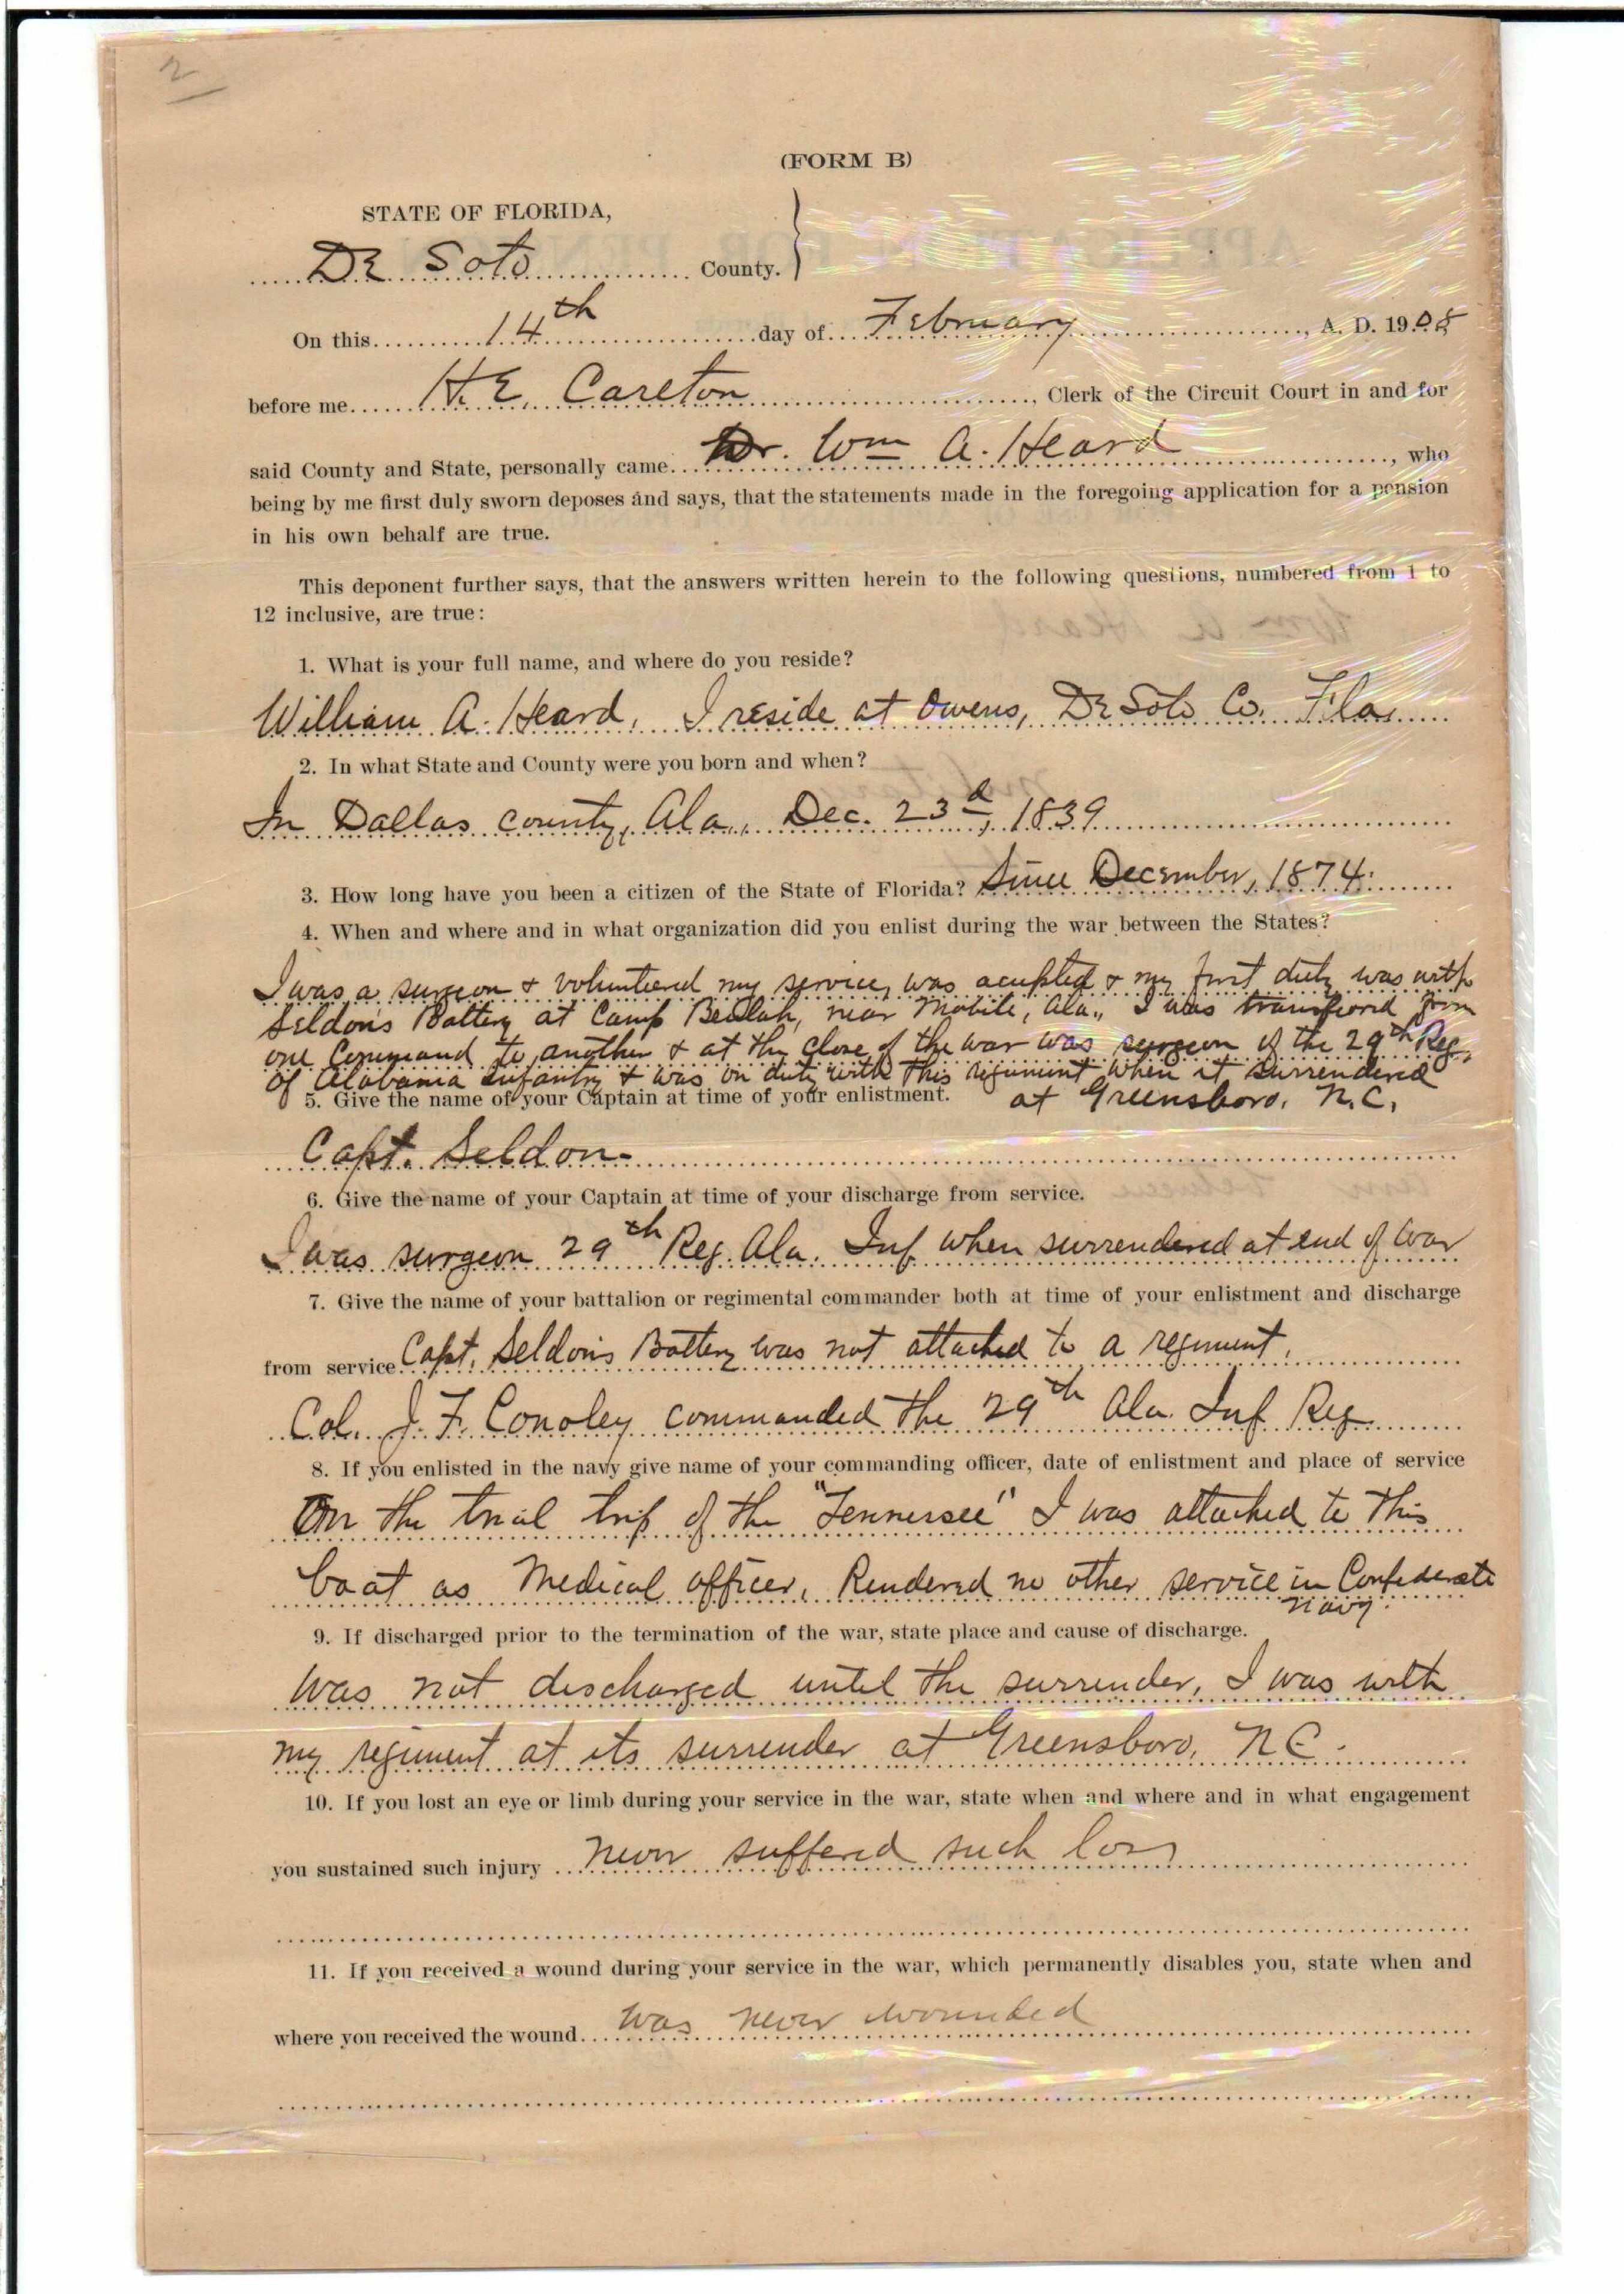 2
(FORM B)
STATE OF FLORIDA,
De Soto County.
On this 14th day of February, A. D. 1908
before me H. E. Carlton, Clerk of the Circuit Court in and for
said County and State, personally came Dr. Wm A. Heard, who
being by me first duly sworn deposes and says, that the statements made in the foregoing application for a pension
in his own behalf are true.
This deponent further says, that the answers written herein to the following questions, numbered from 1 to
12 inclusive, are true:
1. What is your full name, and where do you reside?
William A. Heard, I reside at Owens, De Soto Co. Fla.
2. In what State and County were you born and when?
In Dallas county, Ala., Dec. 23d, 1839
3. How long have you been a citizen of the State of Florida? Since December, 1874.
4. When and where and in what organization did you enlist during the war between the States?
I was a surgeon & voluntered my service, was acepted & my first duty was with
Seldon's Battery at Camp Beulah, near Mobile, Ala., I was transferred from
one Command to another & at the close of the war was surgeon of the 29th Reg.
of Alabama Infantry & was on duty with this regiment when it surrendered
at Greensboro, N.C.
5. Give the name of your Captain at time of your enlistment.
Capt. Seldon.
6. Give the name of your Captain at time of your discharge from service.
I was surgeon 29th Reg. Ala. Inf when surrendered at end of war
7. Give the name of your battalion or regimental commander both at time of your enlistment and discharge
from service Capt. Seldon's Battery was not attached to a regiment.
Col. J. F. Conoley commanded the 29th Ala. Inf Reg.
8. If you enlisted in the navy give name of your commanding officer, date of enlistment and place of service
On the trial trip of the "Tennersee" I was attached to this
boat as Medical officer, Rendered no other service in Confederate
Navy.
9. If discharged prior to the termination of the war, state place and cause of discharge.
Was not discharged until the surrender, I was with
my regiment at its surrender at Greensboro, N C.
10. If you lost an eye or limb during your service in the war, state when and where and in what engagement
you sustained such injury Never suffered such loss
11. If you received a wound during your service in the war, which permanently disables you, state when and
where you received the wound Was never wounded